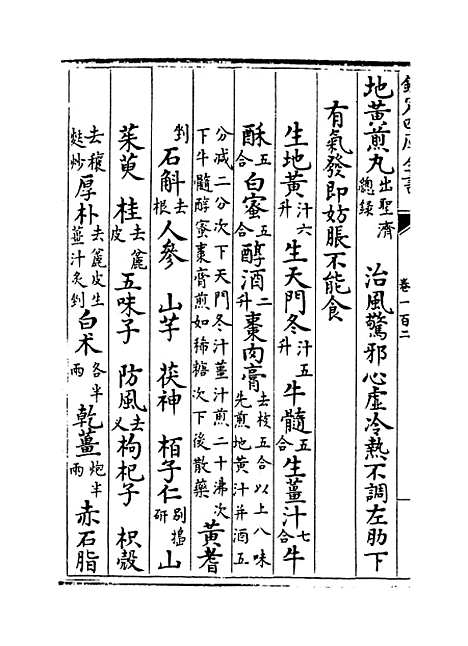 欽定四庫全書
卷一百二
地黄煎丸出聖濟總録　治風驚邪心虚冷熱不調左肋下
有氣發即妨脹不能食
生地黄汁六升　生天門冬汁五升　牛髓五合　生薑汁七合　牛
酥五合　白蜜五合　醇酒二升　棗肉膏去核五合以上八味先煎地黄汁并酒五
分减二分次下天門冬汁薑汁煎二十沸次下牛髓醇蜜棗膏煎如稀糖次下後散藥　黄耆
剉　石斛去根　人參　山芋　茯神　栢子仁别搗研　山
茱萸　桂去麄皮　五味子　防風去叉　枸杞子　枳殼
去穰麩炒　厚朴去麄皮生薑汁炙剉　白术各半兩　乾薑炮半兩　赤石脂